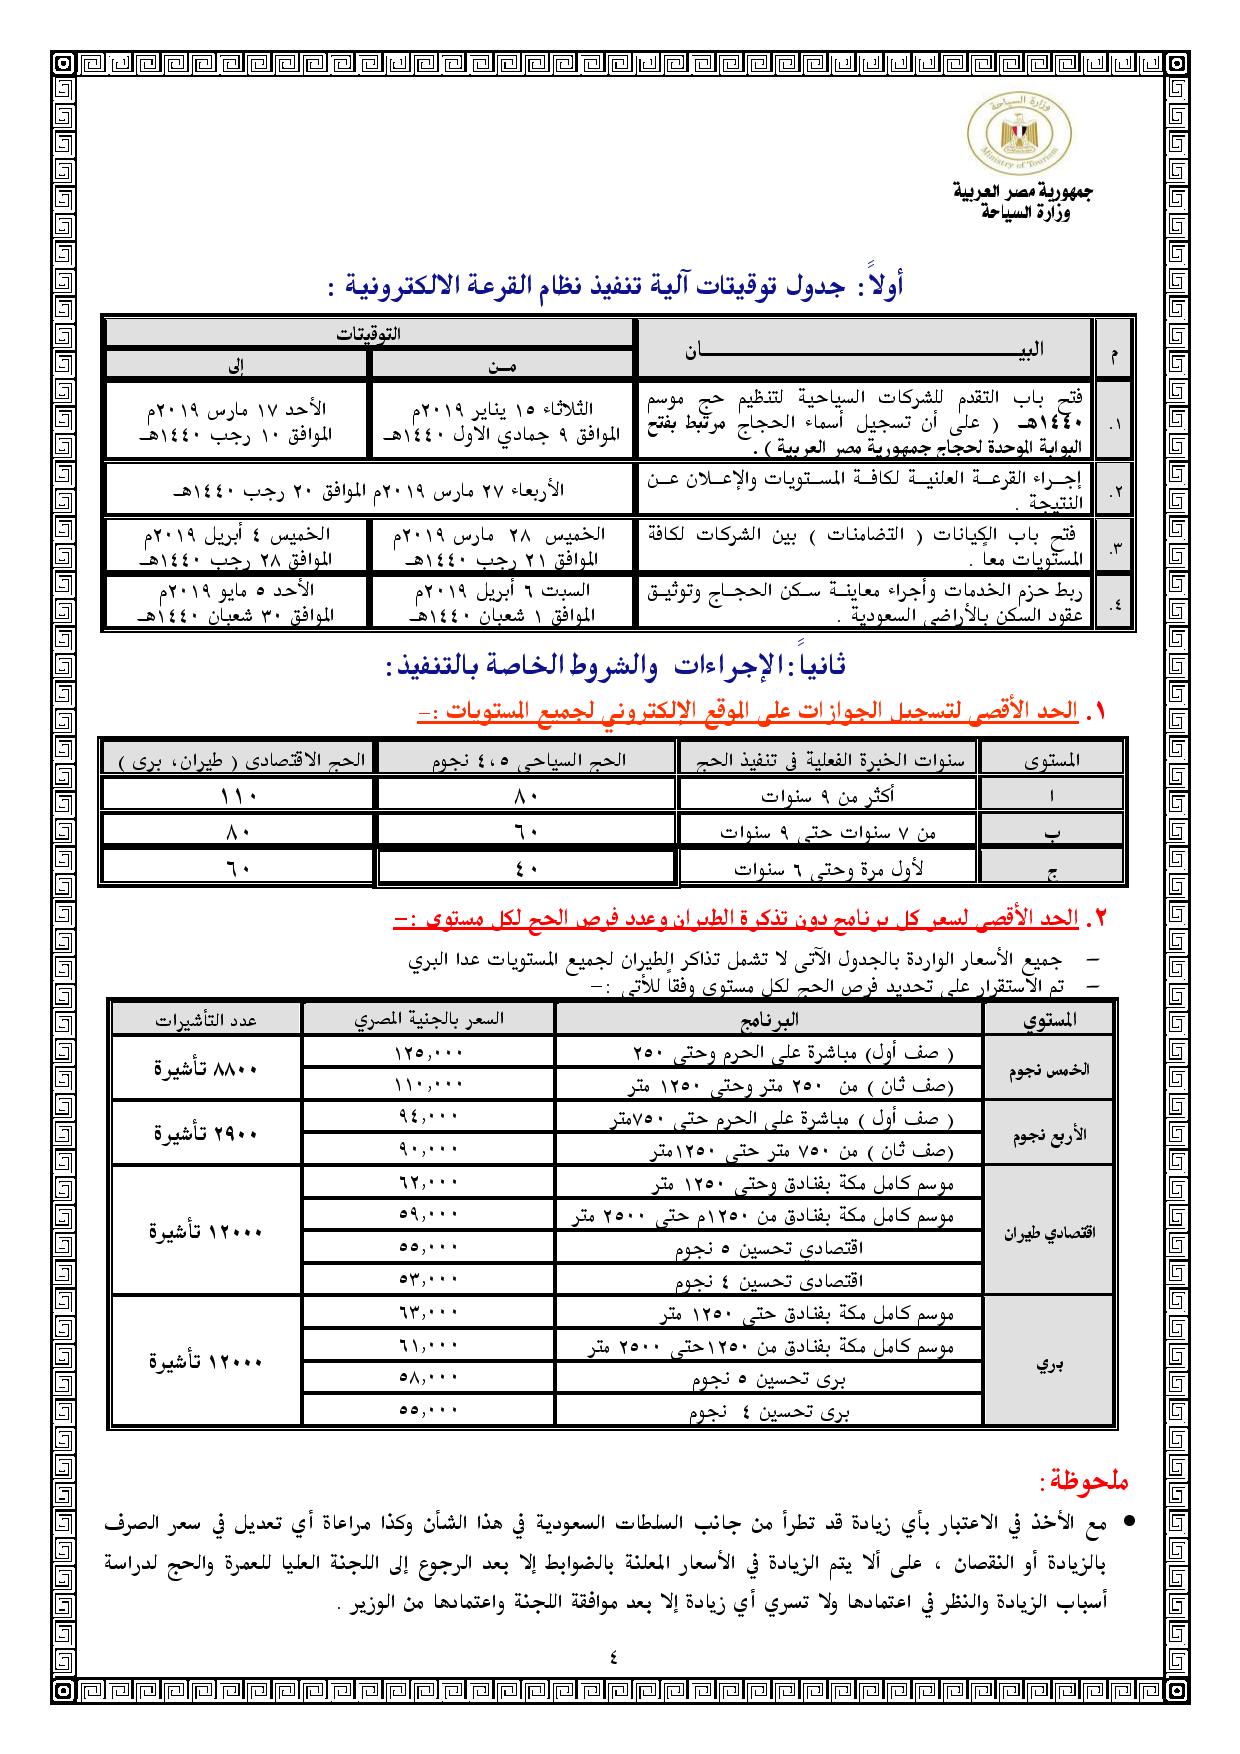 وزارة السياحة
Ministry of Tourism
جمهورية مصر العربية
وزارة السياحة
أولاً: جدول توقيتات آلية تنفيذ نظام القرعة الالكترونية :
م البيـــــــــــــــان التوقيتات
مــن إلى
١. فتح باب التقدم للشركات السياحية لتنظيم حج موسم
١٤٤٠هـ ( على أن تسجيل أسماء الحجاج مرتبط بفتح
البوابة الموحدة لحجاج جمهورية مصر العربية ) .
الثلاثاء ١٥ يناير ٢٠١٩م
الموافق ٩ جمادي الاول ١٤٤٠هـ
الأحد ١٧ مارس ٢٠١٩م
الموافق ١٠ رجب ١٤٤٠هـ
٢. إجــراء القرعــة العلنيــة لكافــة المســتويات والإعــلان عــن
النتيجة .
الأربعاء ٢٧ مارس ٢٠١٩م الموافق ٢٠ رجب ١٤٤٠هـ
٣. فتح باب الكيانات ( التضامنات ) بين الشركات لكافة
المستويات معاً .
الخميس ٢٨ مارس ٢٠١٩م
الموافق ٢١ رجب ١٤٤٠هـ
الخميس ٤ أبريل ٢٠١٩م
الموافق ٢٨ رجب ١٤٤٠هـ
٤. ربط حزم الخدمات وأجراء معاينــة ســكن الحجــاج وتوثيــق
عقود السكن بالأراضى السعودية .
السبت ٦ أبريل ٢٠١٩م
الموافق ١ شعبان ١٤٤٠هـ
الأحد ٥ مايو ٢٠١٩م
الموافق ٣٠ شعبان ١٤٤٠هـ
ثانياً:الإجراءات والشروط الخاصة بالتنفيذ:
١. الحد الأقصى لتسجيل الجوازات على الموقع الإلكتروني لجميع المستويات :-
المستوى سنوات الخبرة الفعلية فى تنفيذ الحج الحج السياحى ٤،٥ نجوم الحج الاقتصادى ( طيران، برى )
ا أكثر من ٩ سنوات ٨٠ ١١٠
ب من ٧ سنوات حتى ٩ سنوات ٦٠ ٨٠
ج لأول مرة وحتى ٦ سنوات ٤٠ ٦٠
٢. الحد الأقصى لسعر كل برنامج دون تذكرة الطيران وعدد فرص الحج لكل مستوى :-
- جميع الأسعار الواردة بالجدول الآتى لا تشمل تذاكر الطيران لجميع المستويات عدا البري
- تم الاستقرار على تحديد فرص الحج لكل مستوى وفقاً للأتى :-
المستوي البرنامج السعر بالجنية المصري عدد التأشيرات
الخمس نجوم ( صف أول) مباشرة على الحرم وحتى ٢٥٠ ١٢٥,٠٠٠ ٨٨٠٠ تأشيرة
(صف ثان ) من ٢٥٠ متر وحتى ١٢٥٠ متر ١١٠,٠٠٠
الأربع نجوم ( صف أول ) مباشرة على الحرم حتى ٧٥٠متر ٩٤,٠٠٠ ٢٩٠٠ تأشيرة
(صف ثان ) من ٧٥٠ متر حتى ١٢٥٠متر ٩٠,٠٠٠
اقتصادي طيران موسم كامل مكة بفنادق وحتى ١٢٥٠ متر ٦٢,٠٠٠ ١٢٠٠٠ تأشيرة
موسم كامل مكة بفنادق من ١٢٥٠م حتى ٢٥٠٠ متر ٥٩,٠٠٠
اقتصادي تحسين ٥ نجوم ٥٥,٠٠٠
اقتصادى تحسين ٤ نجوم ٥٣,٠٠٠
بري موسم كامل مكة بفنادق حتى ١٢٥٠ متر ٦٣,٠٠٠ ١٢٠٠٠ تأشيرة
موسم كامل مكة بفنادق من ١٢٥٠حتى ٢٥٠٠ متر ٦١,٠٠٠
برى تحسين ٥ نجوم ٥٨,٠٠٠
برى تحسين ٤ نجوم ٥٥,٠٠٠
ملحوظة:
● مع الأخذ في الاعتبار بأي زيادة قد تطرأ من جانب السلطات السعودية في هذا الشأن وكذا مراعاة أي تعديل في سعر الصرف
بالزيادة أو النقصان ، على ألا يتم الزيادة في الأسعار المعلنة بالضوابط إلا بعد الرجوع إلى اللجنة العليا للعمرة والحج لدراسة
أسباب الزيادة والنظر في اعتمادها ولا تسري أي زيادة إلا بعد موافقة اللجنة واعتمادها من الوزير .
٤